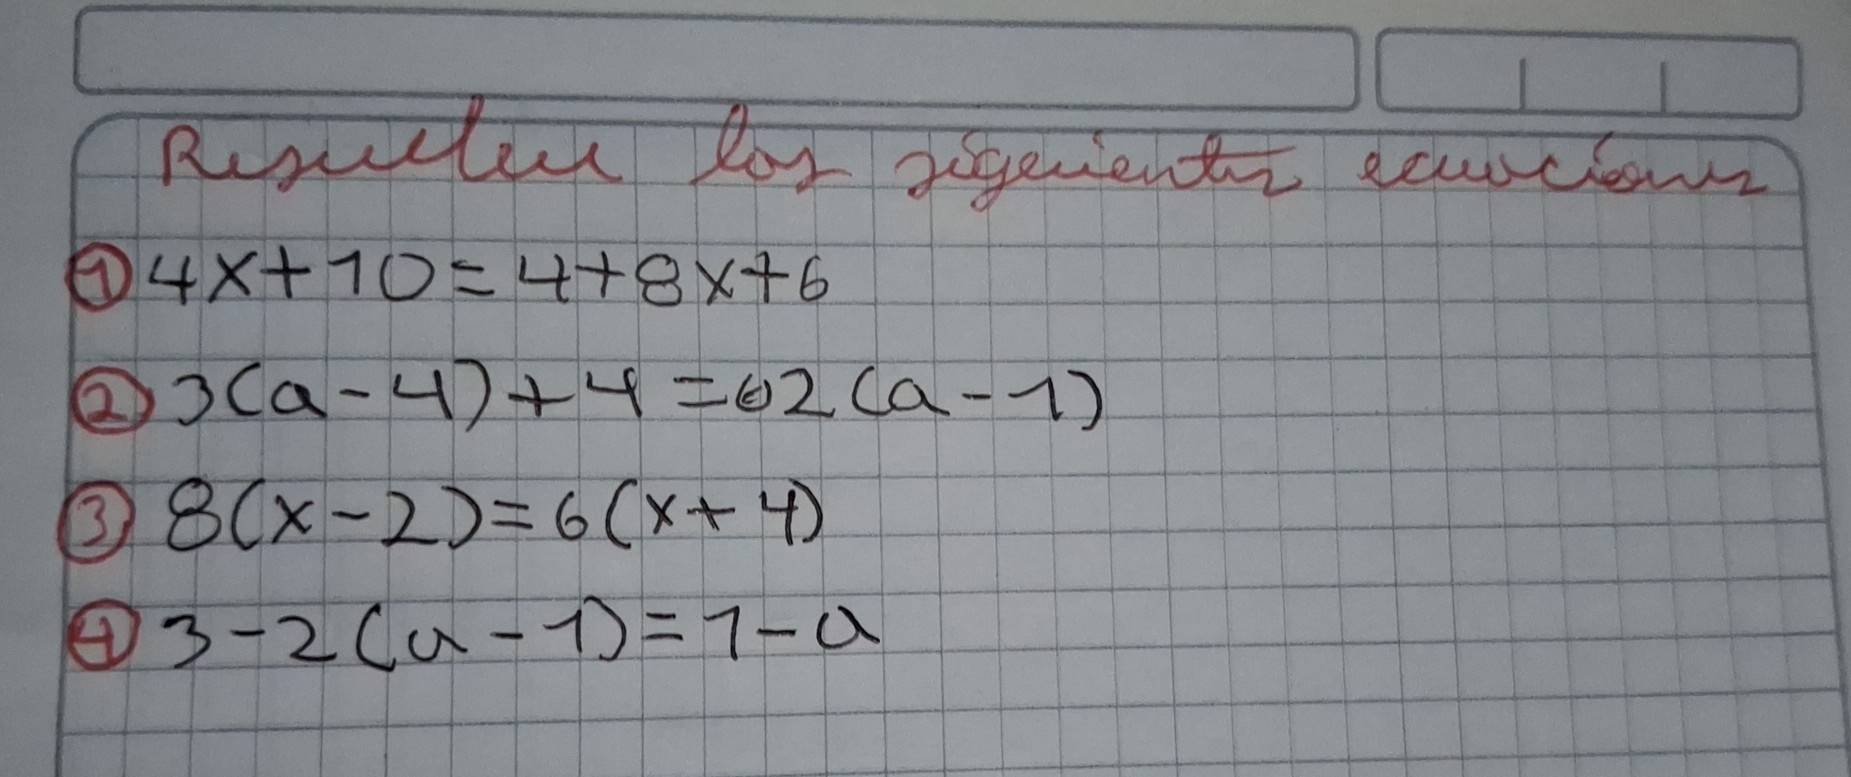 Resuelva las sigenientes ecuaciones
① 4x+10=4+8x+6
② 3(a-4)+4=2(a-1)
③ 8(x-2)=6(x+4)
④ 3-2(a-1)=1-a